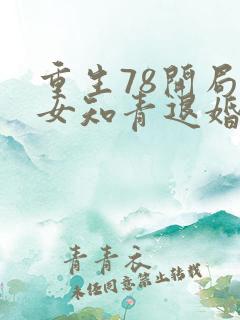 重生78开局
女知青退婚
青青衣
未经同意禁止转载